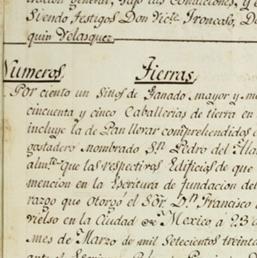 tracion General, bajo las Condiciones, y
Siendo testigos Don Victe. Troncoso, D
quin Velasquez
Numeros Tierras
Por ciento un Sitios de Ganado mayor y m
cincuenta y cinco Caballerias de tierra en
incluye la de Pan llevar comprehendidos
gostadero Nombrado Sn. Pedro del
almte. que las respectivos Edificios de que
mencion en la Escritura de fundacion del
razgo que otorgo el Sor. Dn. Francisco
vielso en la Ciudad de Mexico á 23 d
mes de Marzo de mil Setecientos treinta